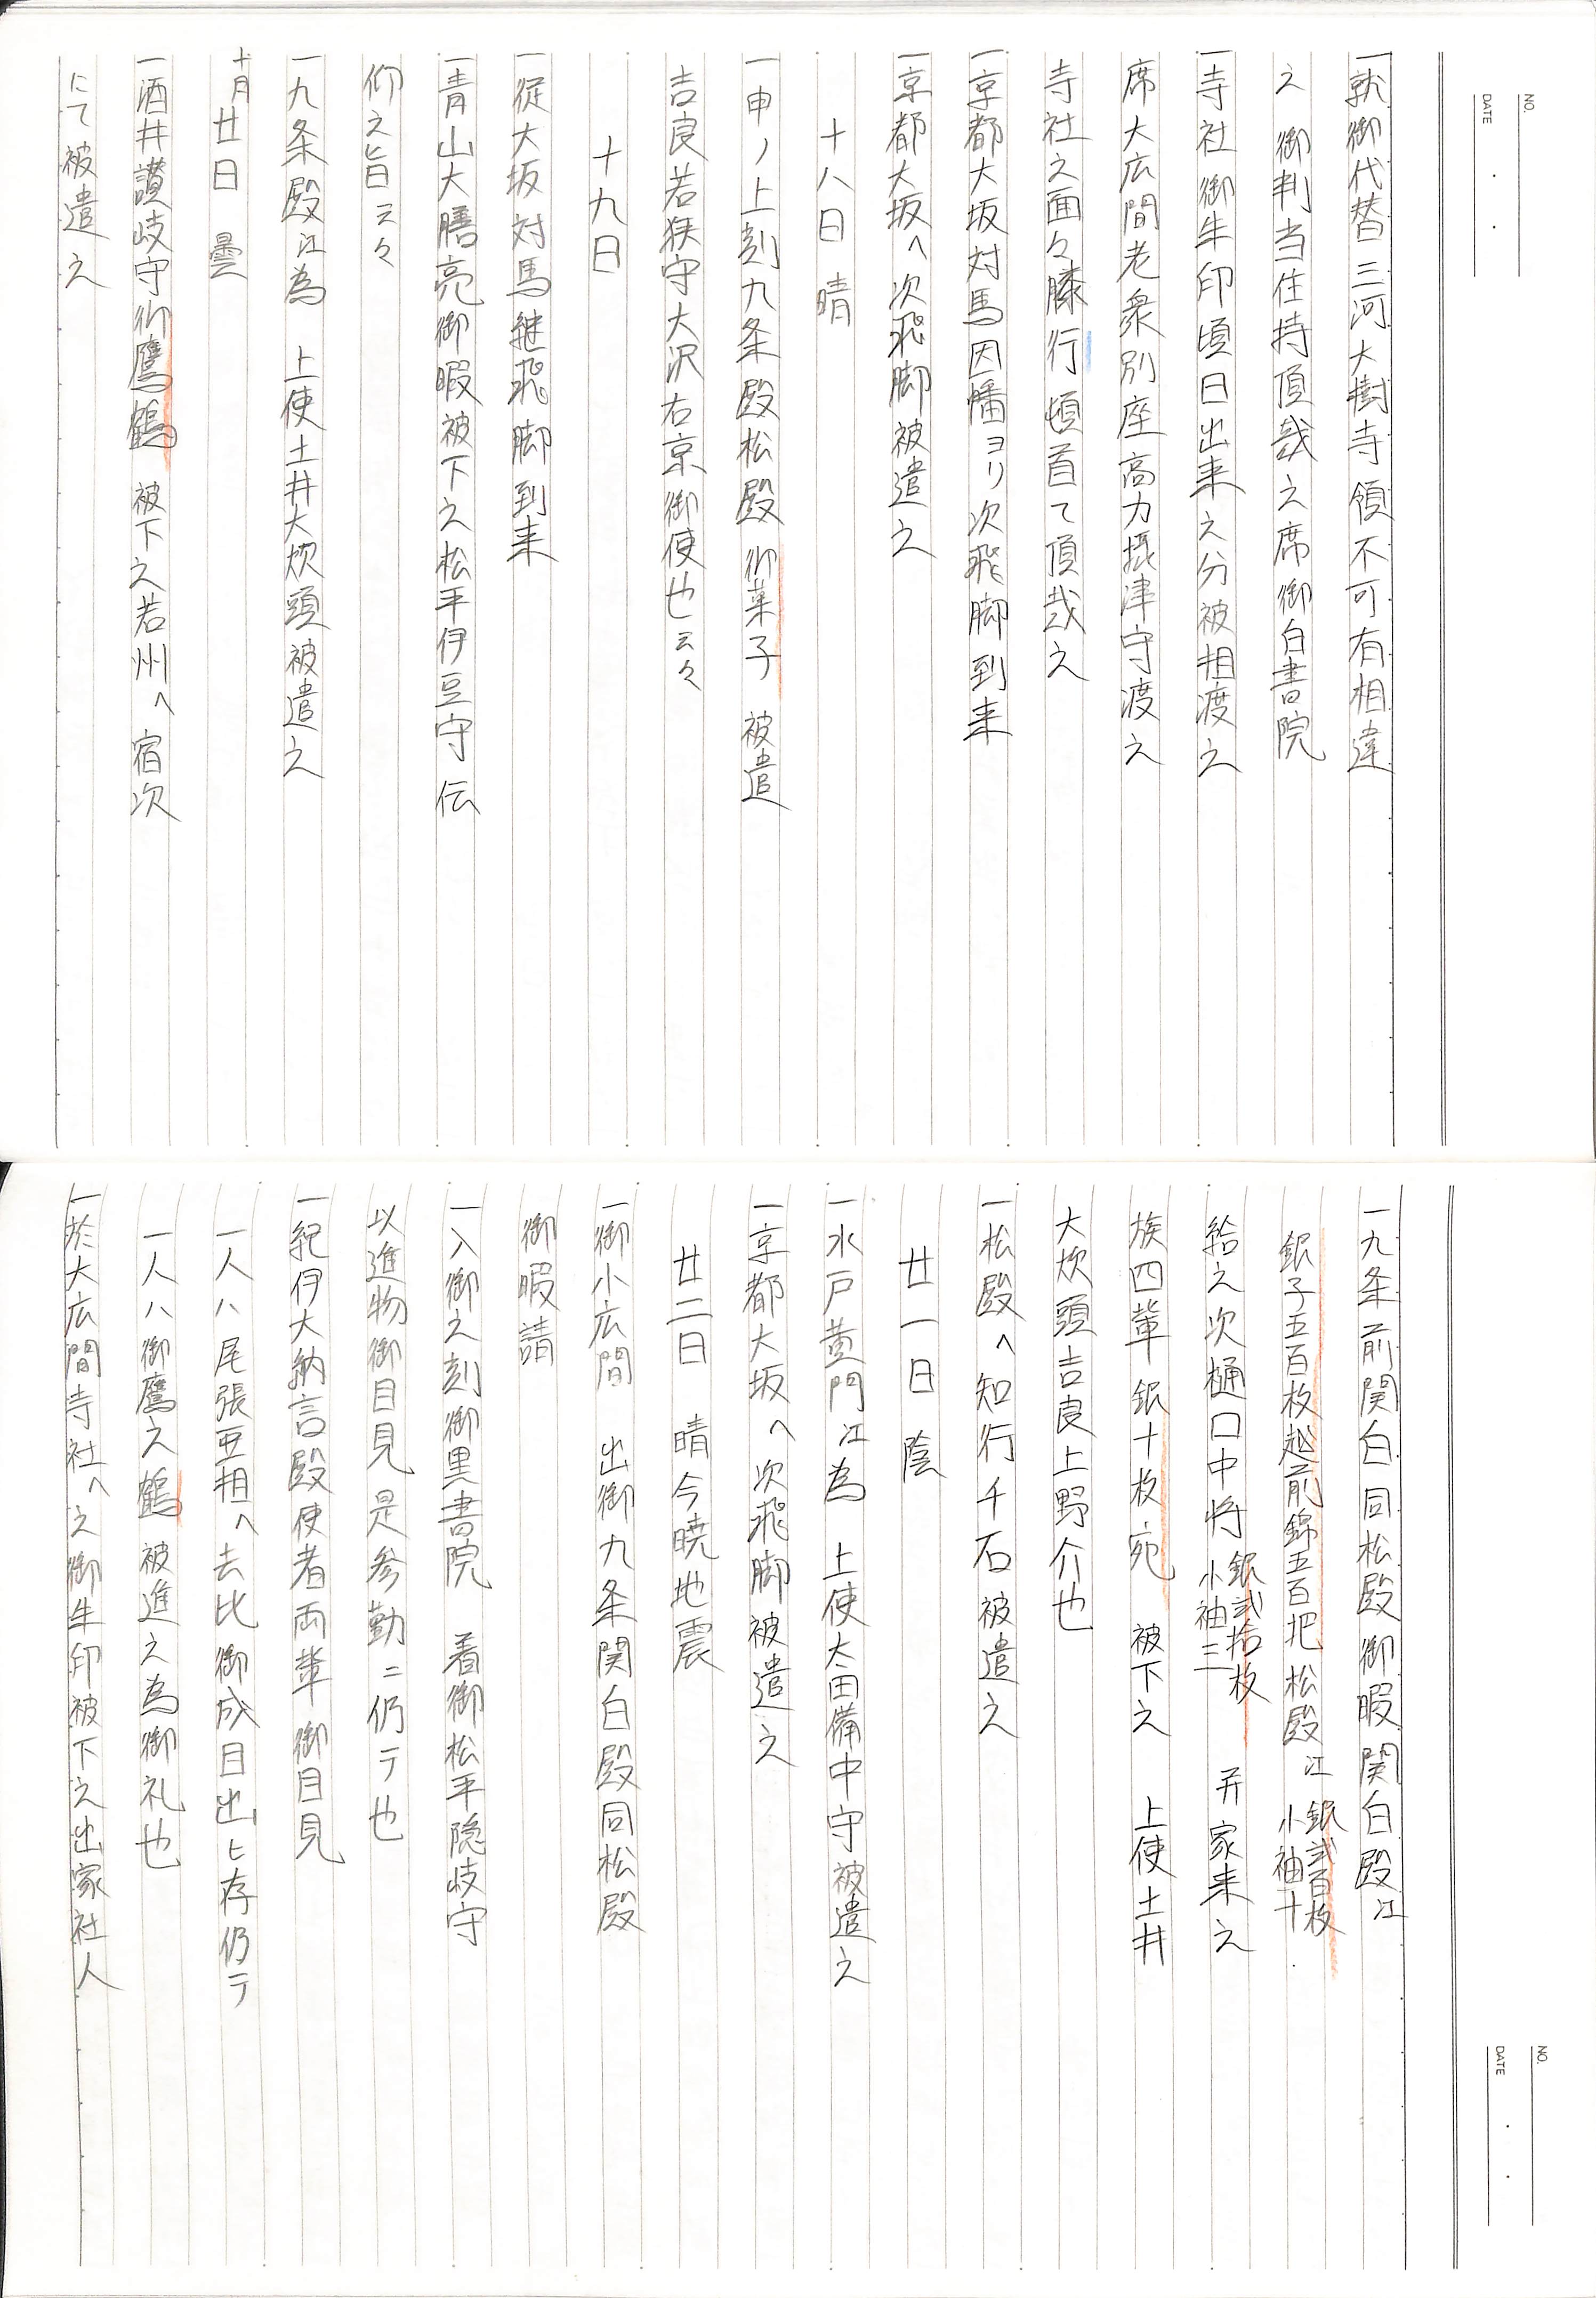 NO.
DATE
一就御代替三河大樹寺領不可有相違
之 御判当住持頂哉之席御白書院
一寺社御朱印頃日出来之分被相渡之
席大広間老衆別座高力摂津守渡之
寺社之面々膝行頓首て頂哉之
一京都大坂対馬因幡ヨリ次飛脚到来
一京都大坂へ次飛脚被遣之
十八日 晴
一申ノ上刻九条殿松殿 御菓子 被遣
吉良若狭守大沢右京御使也云々
十九日
一従大坂対馬継飛脚到来
一青山大膳亮御暇被下之松平伊豆守伝
仰之旨云々
一九条殿江為 上使土井大炊頭被遣之
十月廿日 曇
一酒井讃岐守御鷹鶴 被下之若州へ宿次
にて被遣之
NO.
DATE
一九条前関白同松殿御暇関白殿江
銀子五百枚越前錦五百把松殿江 銀弐百枚 小袖十
給之次樋口中将 銀弐拾枚 小袖三 并家来之
族四輩銀十枚宛 被下之 上使土井
大炊頭吉良上野介也
一松殿へ知行千石被遣之
廿一日 陰
一水戸黄門江為 上使太田備中守被遣之
一京都大坂へ次飛脚被遣之
廿二日 晴今暁地震
一御小広間 出御九条関白殿同松殿
御暇請
一入御之刻御黒書院 着御松平隠岐守
以進物御目見是参勤ニ仍テ也
一紀伊大納言殿使者両輩御目見
一人ハ尾張亜相へ去比御成目出ヒ存仍テ
一人ハ御鷹之鶴被進之為御礼也
一於大広間寺社へ之御朱印被下之出家社人